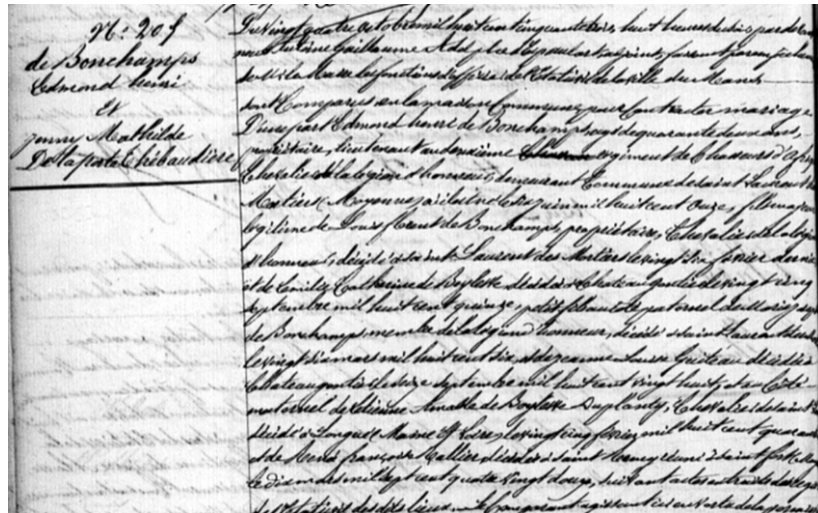 N° 205
de Bonchamps
Edmond henri
Et
jenny Mathilde
De la porte Thébaudière
Du vingt quatre octobre mil huit cent cinquante trois, huit heures du soir, par devant
nous Guillaume adjoint,
de M. le Maire les fonctions d'officier de l'Etat civil de la ville du Mans
sont Comparus en la maison Commune, pour Contracter mariage
D'une part Edmond henri de Bonchamps, agé de quarante deux ans,
propriétaire, lieutenant au deuxième régiment de Chasseurs d'afrique
Chevalier de la légion d'honneur, demeurant Commune de saint Laurent des
Mortiers Mayenne, où il est né le juin mil huit cent onze, fils majeur
légitime de Louis florent de Bonchamps, propriétaire, Chevalier de la légion
d'honneur, décédé à saint Laurent des Mortiers le vingt six février dernier
et de Camille Catherine de Boylesve décédée à Chateaugontier le vingt cinq
septembre mil huit cent quinze, petit fils du côté paternel de
de Bonchamps, membre de la légion d'honneur, décédé à saint laurent des
le vingt six mars mil huit cent dix, et de jeanne Louise Guiteau décédée à
Chateaugontier le seize septembre mil huit cent vingt huit, et au Côté
maternel de Etienne Amable de Boylesve Duplanty, Chevalier de saint
décédé à Longué Maine et Loire, le vingt cinq février mil huit cent
et de Renée françoise décédée à saint
le dix mars mil sept cent quatre vingt douze, suivant actes extraits des registres
de l'Etat civil des dits lieux